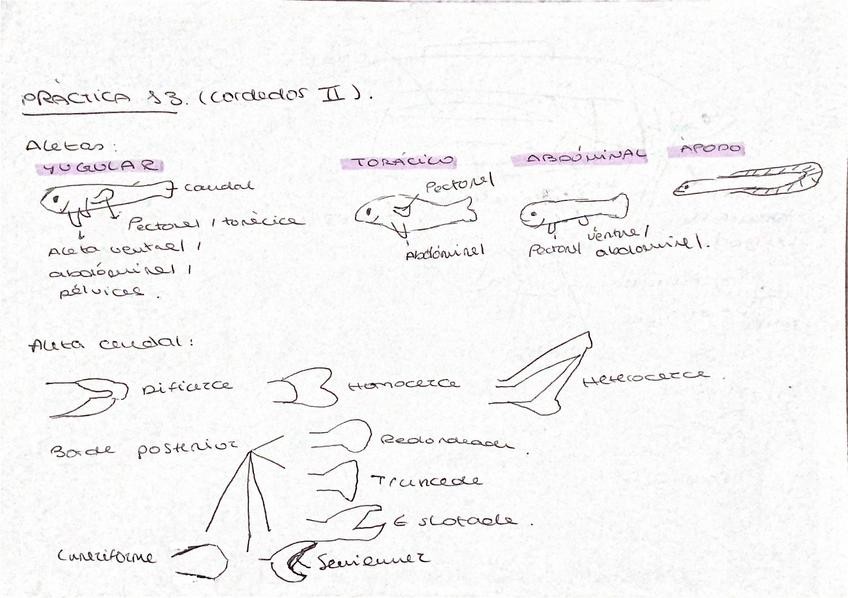 PRÁCTICA 13. (Cordados II).
Aletas:
YUGULAR
TORÁCICO
ABDÓMINAL
ÁPODO
caudal
Pectoral / torácica
Aleta ventral /
abdóminal /
pélvica.
Pectoral
Abdóminal
Pectoral
ventral /
abdominal.
Aleta caudal:
Dificerca
Homocerca
Heterocerca.
Borde posterior
Redondeada.
Truncada
Escotada.
Semilunar